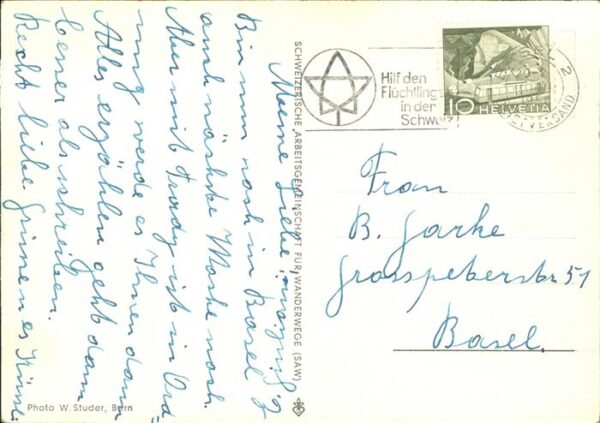 Meine Liebe,
Bin nun noch in Basel &
auch nächste Woche noch.
Aber mit Trudy ist in Ord=
nung werde es Ihnen dann
Alles erzählen geht dann
besser als schreiben.
Recht liebe Grüsse
Photo W. Studer, Bern
SCHWEIZERISCHE ARBEITSGEMEINSCHAFT FÜR WANDERWEGE (SAW)
Hilf den
Flüchtlinge
in der
Schweiz
10 HELVETIA
2
VERSAND
Frau
B. Garke
Grosspeterstr. 51
Basel.